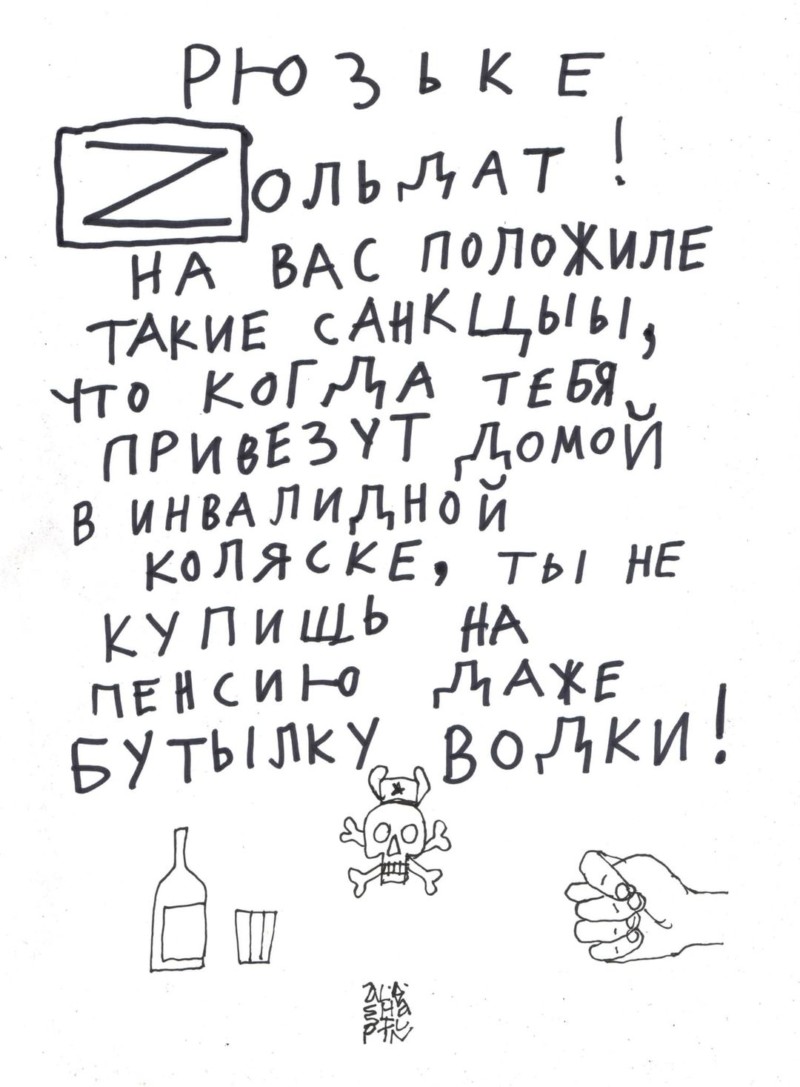 РЮЗЬКЕ
ZОЛЬДАТ!
НА ВАС ПОЛОЖИЛЕ
ТАКИЕ САНКЩЫЫ,
ЧТО КОГДА ТЕБЯ
ПРИВЕЗУТ ДОМОЙ
В ИНВАЛИДНОЙ
КОЛЯСКЕ, ТЫ НЕ
КУПИЩЬ НА
ПЕНСИЮ ДАЖЕ
БУТЫЛКУ ВОДКИ!